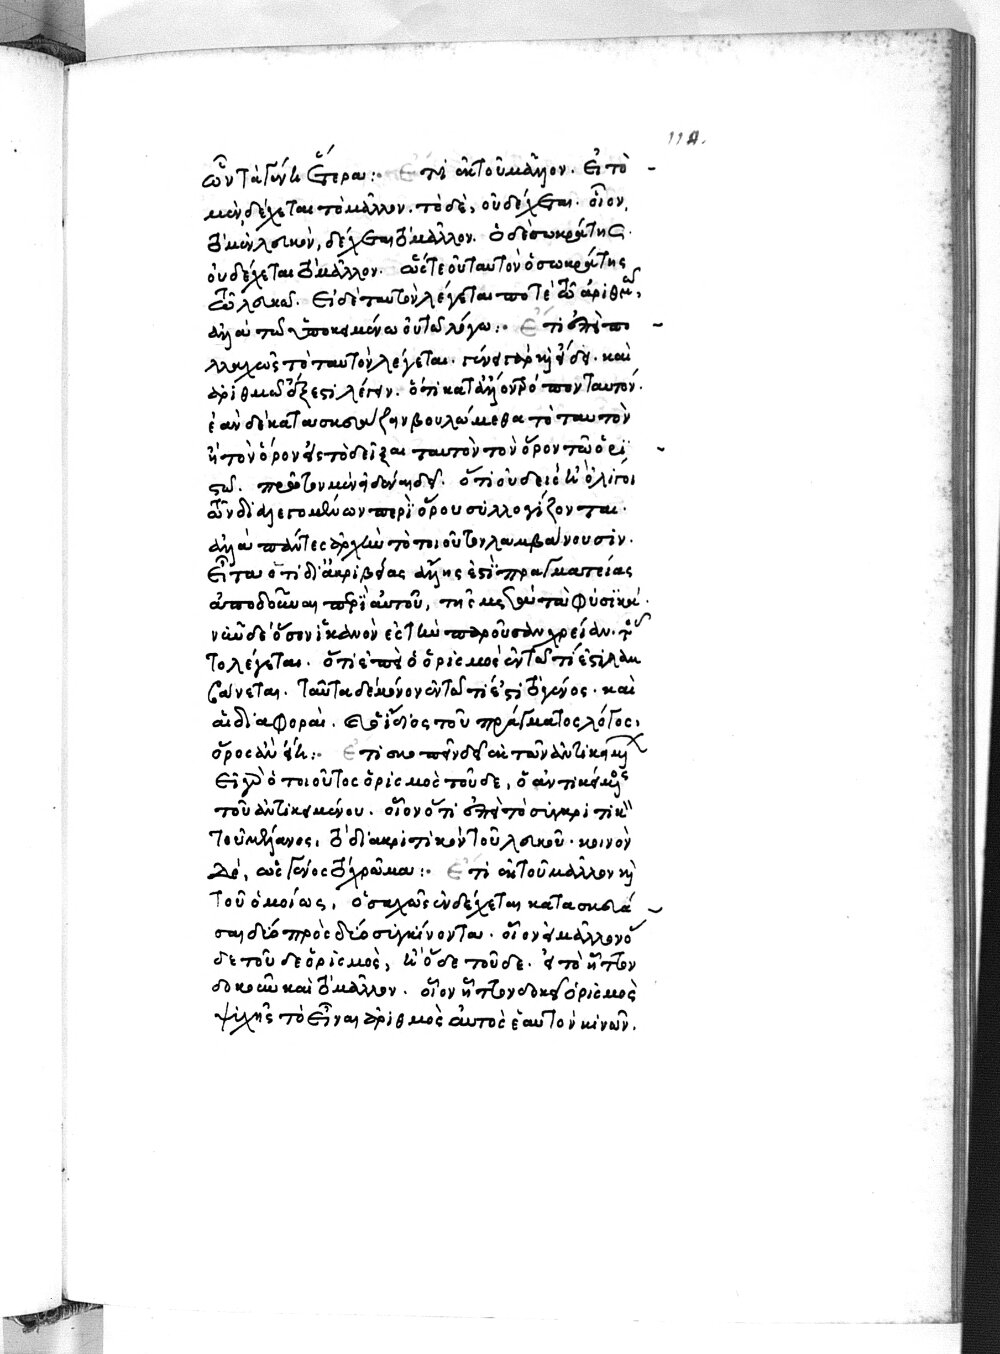 114.
ὧν τὰ γένη ἕτερα :· Ἔτι ἐκ τοῦ μᾶλλον. εἰ τὸ
μὲν δέχεται τὸ μᾶλλον. τὸ δὲ, οὐ δέχεται. οἷον,
τὸ μὲν λευκὸν, δέχεται τὸ μᾶλλον. ὁ δὲ σωκράτης
οὐ δέχεται τὸ μᾶλλον. ὥστε οὐ ταυτὸν ὁ σωκράτης
τῶ λευκῶ. εἰ δὲ ταυτὸν λέγεται ποτὲ τῶ ἀριθμῶ,
ἀλλὰ τῶ ὑποκειμένω οὐ τῶ λόγω :· Ἔτι ἐπεὶ πο
λλαχῶς τὸ ταυτὸν λέγεται. γένει γὰρ καὶ εἴδει. καὶ
ἀριθμῶ ἔξεστι λέγειν. ὅτι κατ' ἄλλον τρόπον ταυτόν.
ἐὰν δὲ κατασκευάζειν βουλώμεθα τὸ ταυτὸν
ἢ τὸν ὅρον εἰς τὸ δεῖξαι ταυτὸν τὸν ὅρον τῶ ὁρι
στῶ. πρῶτον μὲν εἰδέναι δεῖ. ὅτι οὐδεὶς ἢ ὀλίγοι
τῶν διαλεγομένων περὶ ὅρου συλλογίζονται.
ἀλλὰ πάντες ἀρχὴν τὸ τοιοῦτον λαμβάνουσιν.
εἶτα ὅτι δι' ἀκριβείας ἄλλης ἐστὶ πραγματείας
ἀποδοῦναι περὶ αὐτοῦ, τῆς μετὰ τὰ φυσικά.
νῦν δὲ ὅσον ἱκανὸν ἐς τὴν παροῦσαν χρείαν. τοῦ
το λέγεται. ὅτι ἐπεὶ ὁ ὁρισμὸς ἐν τῶ τί ἐστι λαμ
βάνεται. ταῦτα δὲ μόνον ἐν τῶ τί ἐστι τὸ γένος. καὶ
αἱ διαφοραὶ. ὁ ἴδιος τοῦ πράγματος λόγος,
ὅρος ἂν εἴη :· Ἔτι σκοπεῖν δεῖ ἐκ τῶν ἀντικειμένων
εἰ γὰρ ὁ τοιοῦτος ὁρισμὸς τοῦδε, ὁ ἀντικείμενος
τοῦ ἀντικειμένου. οἷον ὅτι ἐπεὶ τὸ συγκριτικὸν
τοῦ μέλανος, τὸ διακριτικὸν τοῦ λευκοῦ. κοινὸν
δὲ, ὡς γένος τὸ χρῶμα :· Ἔτι ἐκ τοῦ μᾶλλον καὶ
τοῦ ὁμοίως, ὁσαχῶς ἐνδέχεται κατασκευά
σαι δύο πρὸς δύο συγκρίνοντα. οἷον εἰ μᾶλλον ὅ
δε τοῦδε ὁρισμὸς, ἢ ὅδε τοῦδε. εἰ τὸ ἧττον
δοκοῦν καὶ τὸ μᾶλλον. οἷον ἧττον δοκεῖ ὁρισμὸς
ψυχῆς τὸ εἶναι ἀριθμὸς αὐτὸς ἑαυτὸν κινῶν.